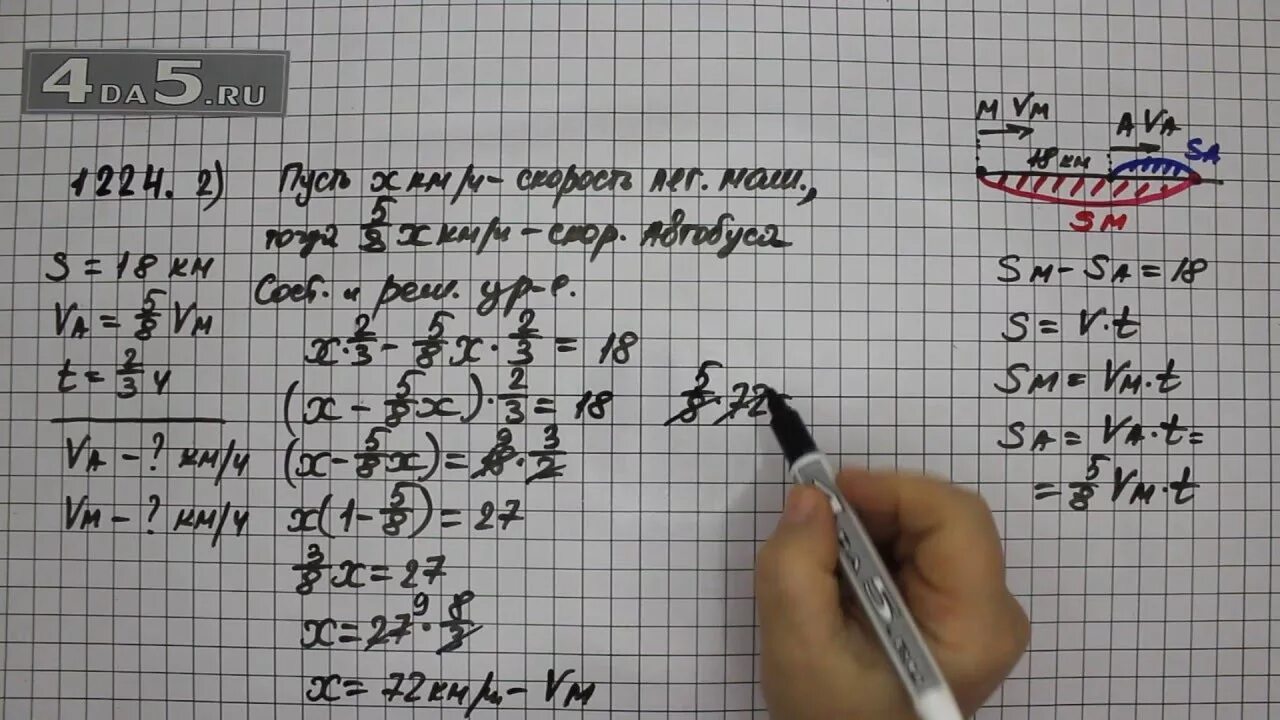 4DA5.RU
1224. 2)
Пусть x км/ч - скорость лег. маш.,
тогда 5/8 x км/ч - скор. Автобуса
Сост. и реш. ур-е.
S = 18 км
VA = 5/8 VM
t = 2/3 ч
VA - ? км/ч
VM - ? км/ч
x · 2/3 - 5/8 x · 2/3 = 18
(x - 5/8 x) · 2/3 = 18
(x - 5/8 x) = 18 9 · 3/2
x(1 - 5/8) = 27
3/8 x = 27
x = 27 9 · 8/3
x = 72 км/ч - VM
5/8 · 72
M VM
A VA
18 км
SA
SM
SM - SA = 18
S = V · t
SM = VM · t
SA = VA · t =
= 5/8 VM · t